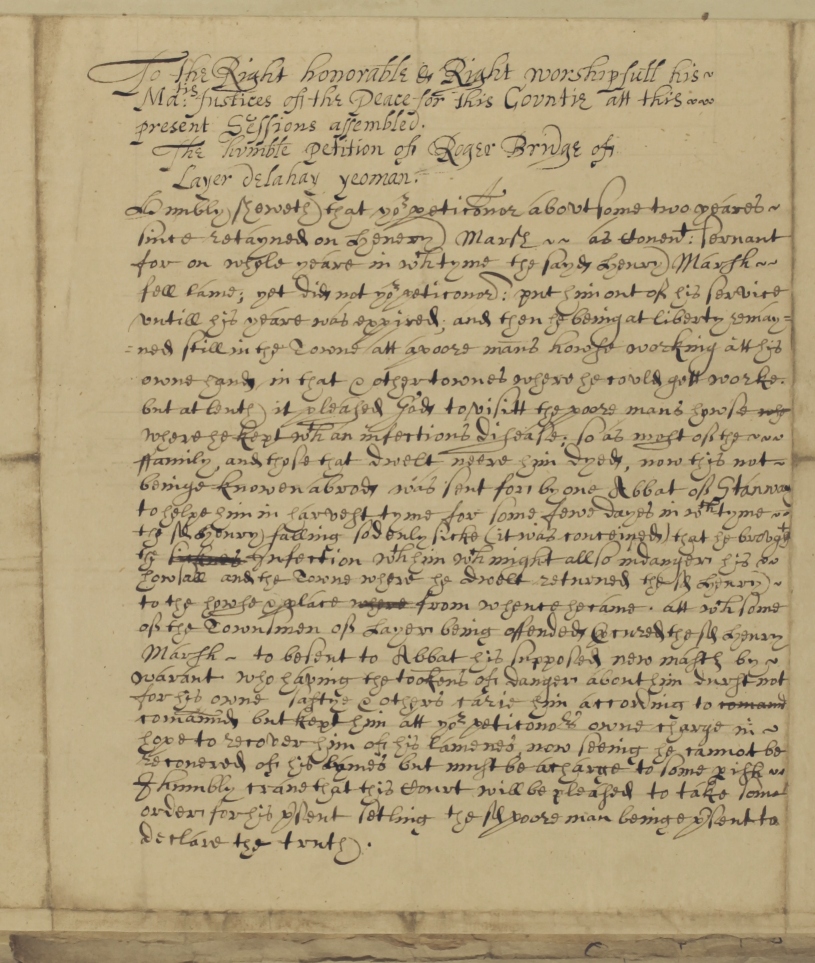 To the Right honorable & Right worshipfull his
Ma:ties Justices of the Peace for this Countie att this
present Sessions assembled.
The humble petition of Roger Bridge of
Layer delahay yeoman.
Humbly sheweth that yor peticonor about some two yeares
since retayned on Henery Marsh as Coven't: servant
for on whole yeare in wch tyme the sayd Henry Marsh
fell lame; yet did not yor peticonor: put him out of his service
untill his yeare was expired; and then he being at liberty remay=
=ned still in the Towne att apoore mans howse working att his
owne hand in that & other townes where he could gett worke.
but at lenth it pleased God to visitt the poore mans howse
where he kept wth an infectious disease; so as most of the
ffamily, and those that dwelt neere him dyed, now this not
beinge knowen abrod was sent for by one Abbat of Stanway
to helpe him in harvest tyme for some fewe dayes in wch tyme
the sd Henry falling sodenly sicke (it was conceived) that he brought
the sicknes Infection wth him wch might allso indanger his
howsall and the Towne where he dwelt returned the sd Henry
to the howse & place where from whence he came. att wch some
of the Townsmen of Layer being offended @cured the sd Henry
Marsh to be sent to Abbat his supposed new mastr by
warant who having the tookens of danger about him durst not
for his owne saftye & others carie him according to comand
comannd but kept him att yor peticonors owne charge in
hope to recover him of his lamenes, now seeing he cannot be
recovered of his lames but must be acharge to some pish
I humbly crave that this Court will be pleased to take some
order for his psent setling the sd poore man beinge psent to
declare the truth.